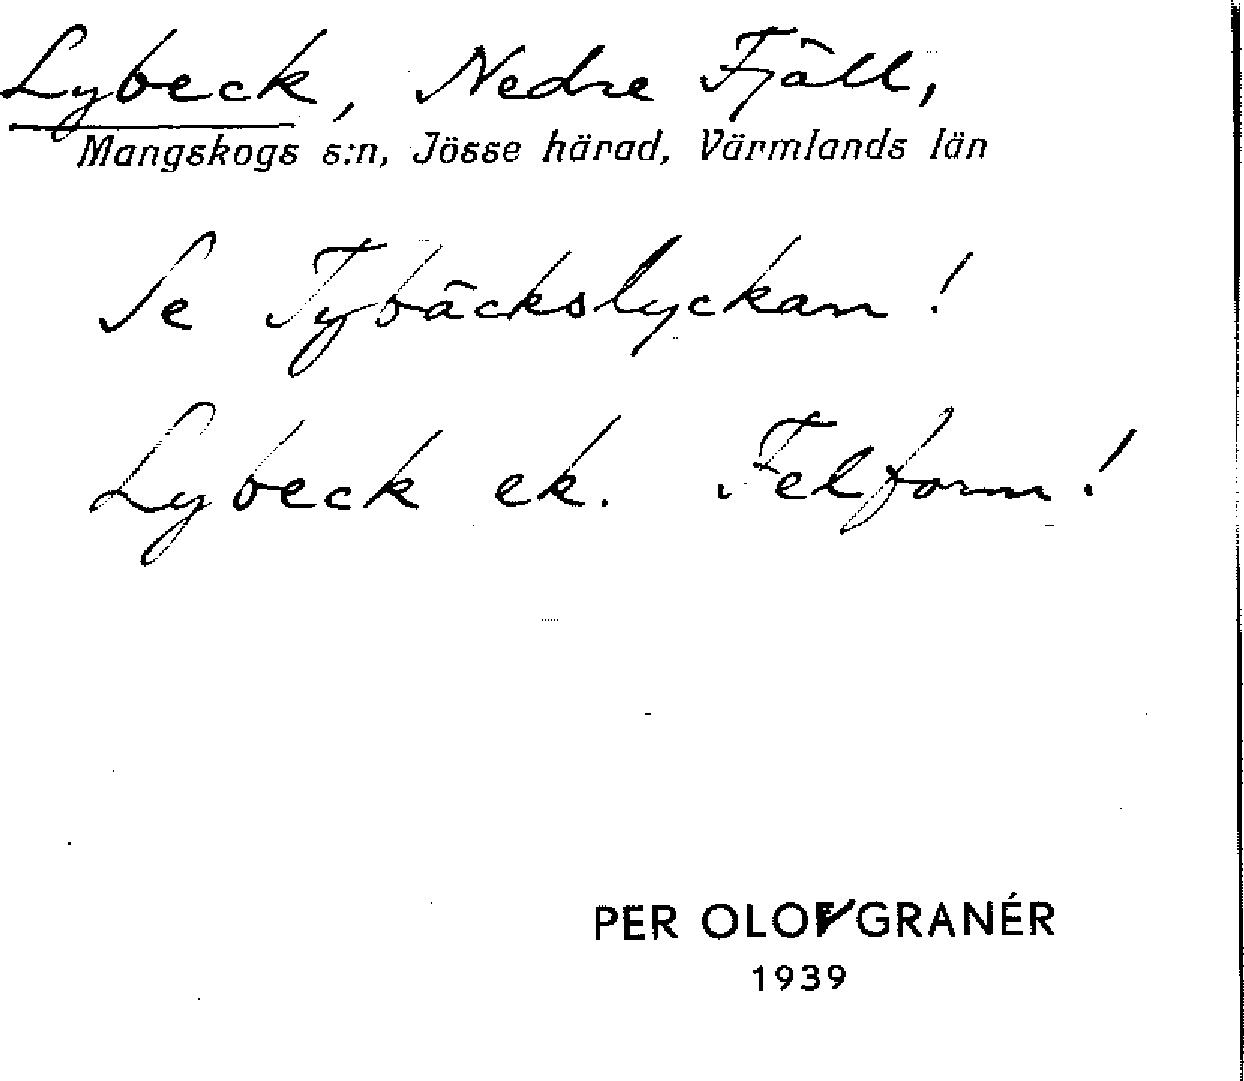 Lybeck, Nedre Fjäll,
Mangskogs s:n, Jösse härad, Värmlands län
Se Tybäckslyckan!
Lybeck ek. Felform!
PER OLOF GRANÉR
1939